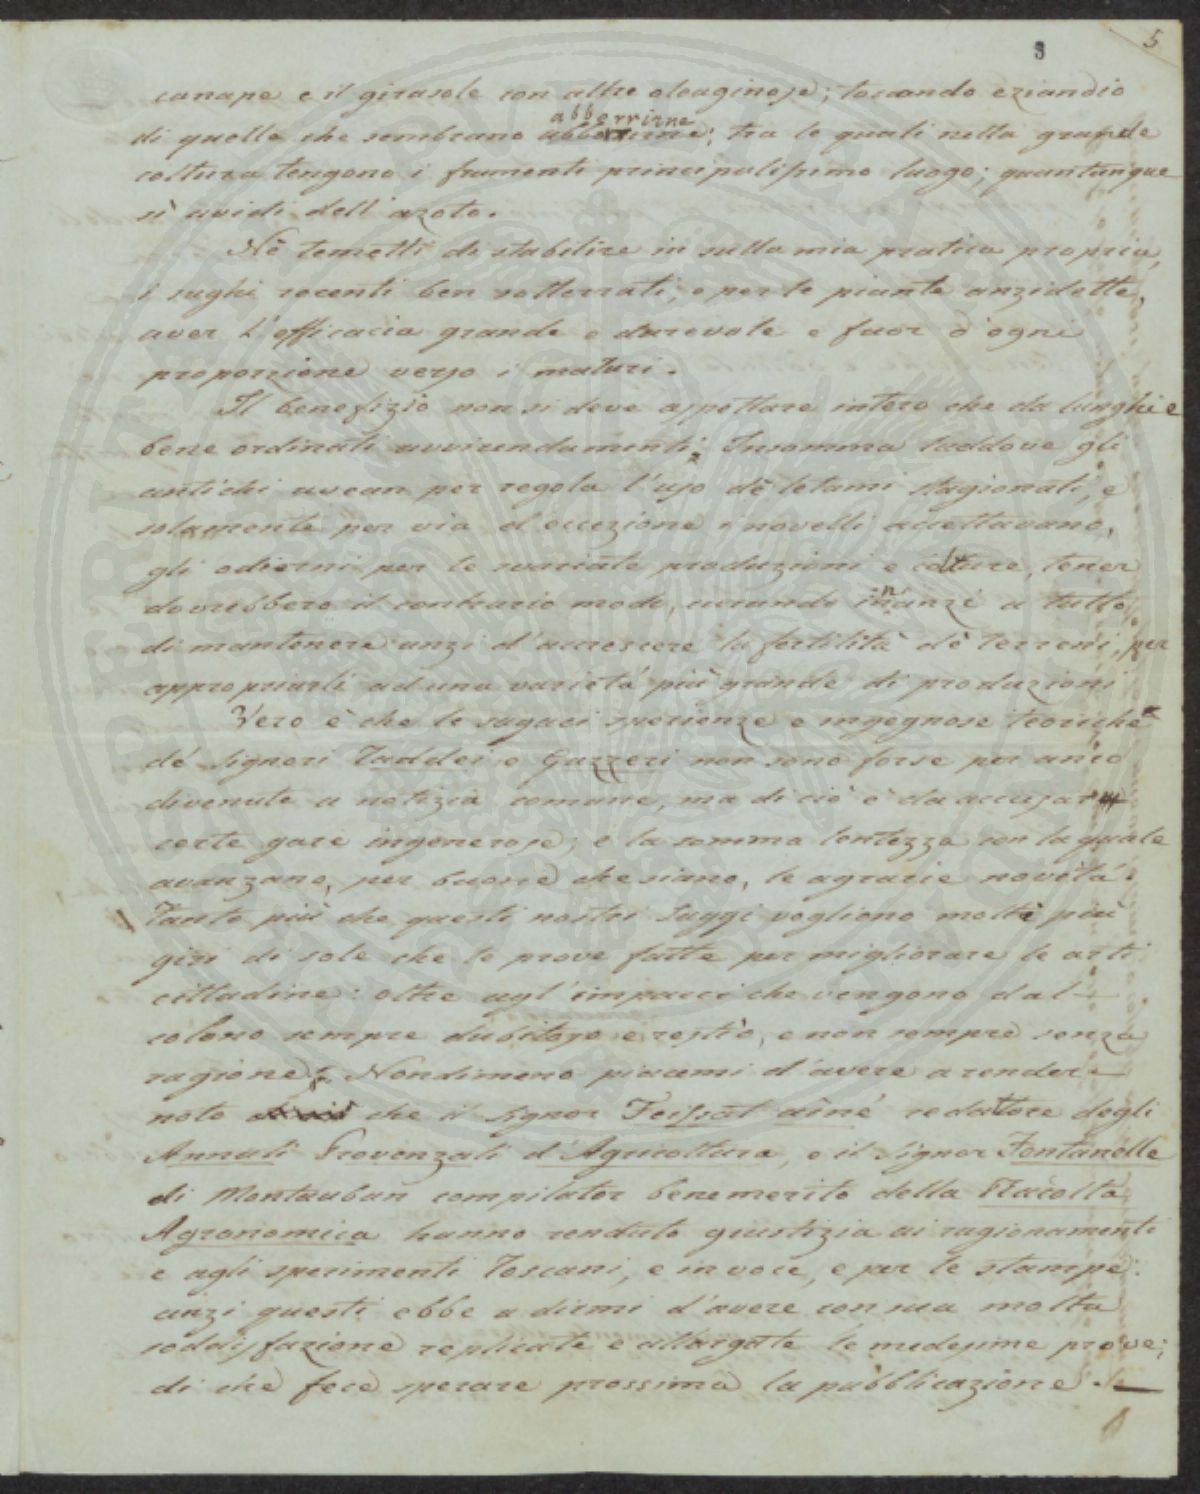 3
5
canape e il girasole con altre oleaginose; toccando eziandio
abborrirne
di quelle che sembrano abborrirne; tra le quali nella grande
coltura tengono i frumenti principalissimo luogo; quantunque
sì avidi dell'azoto.
Nè temetti di stabilire in sulla mia pratica propria,
i sughi recenti ben sotterrati, e per le piante anzidette,
aver l'efficacia grande e durevole e fuor d'ogni
proporzione verso i maturi.
Il benefizio non si deve aspettare intero che da lunghi e
bene ordinati avvicendamenti. Insomma laddove gli
antichi avean per regola l'uso dè letami stagionati, e
solamente per via d'eccezione i novelli accettavano,
gli odierni per le svariate produzioni e colture, tener
dovrebbero il contrario modo, curando innanzi a tutto,
di mantenere anzi d'accrescere la fertilità dè terreni, per
appropriarli ad una varietà più grande di produzioni
Vero è che le sagaci sperienze e ingegnose teoriche
dé Signori Taddei e Gazzeri non sono forse per anco
divenute a notizia comune, ma di ciò è da accusar
certe gare ingenerose; e la somma lentezza con la quale
avanzano, per buone che siano, le agrarie novità.
Tanto più che questi nostri saggi vogliono molti più
giri di sole che le prove fatte per migliorare le arti
cittadine: oltre agl'impacci che vengono dal
colono sempre dubitoso e restio, e non sempre senza
ragione. Nondimeno piacemi d'avere a render
noto che il Signor Feissat ainé redattore degli
Annali Provenzali d'Agricoltura, e il Signor Fontanelle
di Montauban compilator benemerito della Raccolta
Agronomica hanno renduto giustizia ai ragionamenti
e agli sperimenti Toscani, e in voce, e per le stampe:
anzi questi ebbe a dirmi d'avere con sua molta
soddisfazione replicate e allargate le medesime prove;
di che fece sperare prossima la pubblicazione.